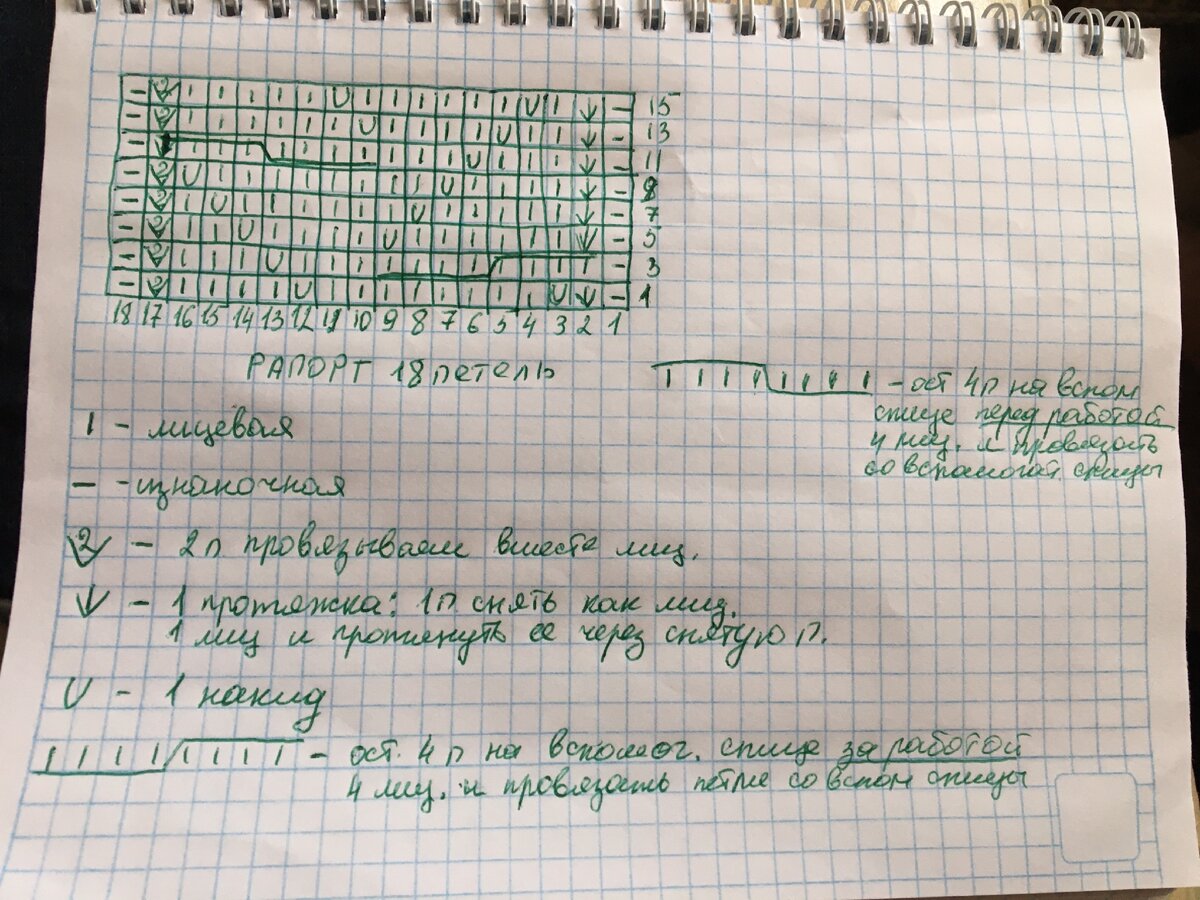 - 2 I I I I I U I I I I I I U I ↓ - 15
- 2 I I I I I I U I I I I U I I ↓ - 13
- ↓ I I I I I I I I I I U I I I ↓ - 11
- 2 U I I I I I I I I U I I I I ↓ - 9
- 2 I U I I I I I I U I I I I I ↓ - 7
- 2 I I U I I I I U I I I I I I ↓ - 5
- 2 I I I U I I I I I I I I I I I - 3
- 2 I I I I U I I I I I I I I U ↓ - 1
18 17 16 15 14 13 12 11 10 9 8 7 6 5 4 3 2 1
РАПОРТ 18 петель
I I I I I I I I - ост 4п на вспом
спице перед работой
4 лиц. и провязать
со вспомогат. спицы
I - лицевая
— - изнаночная
2 - 2п провязываем вместе лиц.
↓ - 1 протяжка: 1п снять как лиц.
1 лиц и протянуть ее через снятую п.
U - 1 накид
I I I I I I I I - ост. 4п на вспомог. спице за работой
4 лиц. и провязать петли со вспом спицы